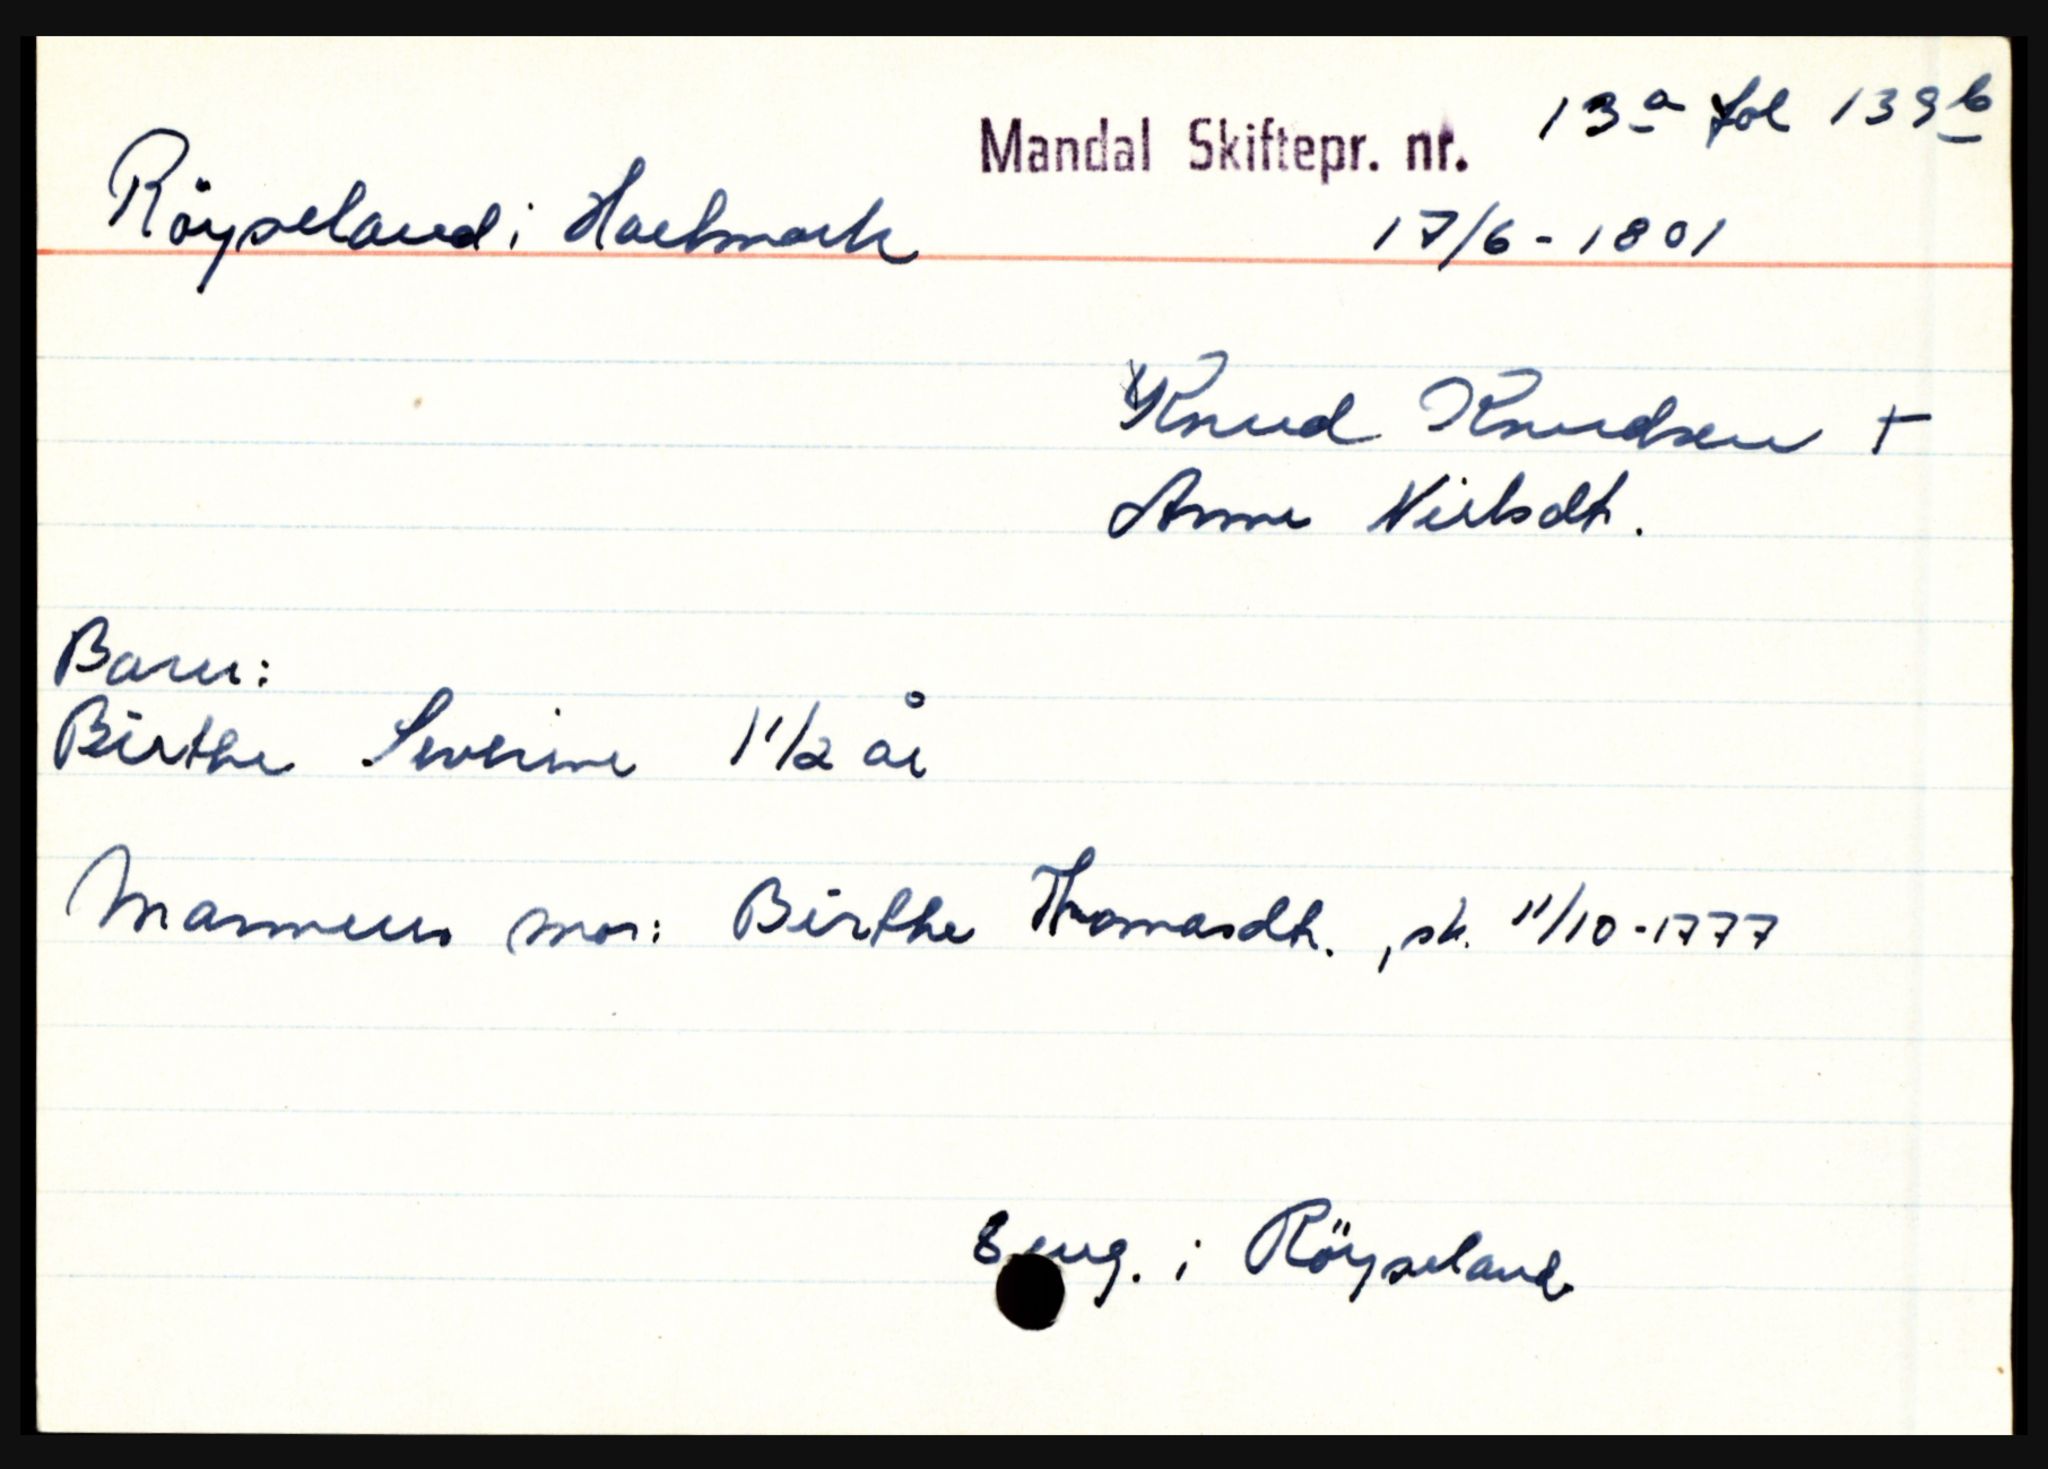 Mandal Skiftepr. nr. 13a fol 139b
Röyseland i Halsmark 17/6 - 1801
Knud Knudsen +
Anne Nielsdt.
Barn:
Birthe Severine 1 1/2 år
Mannens mor: Birthe Thomasdt., sk. 11/10-1777
i Röyseland